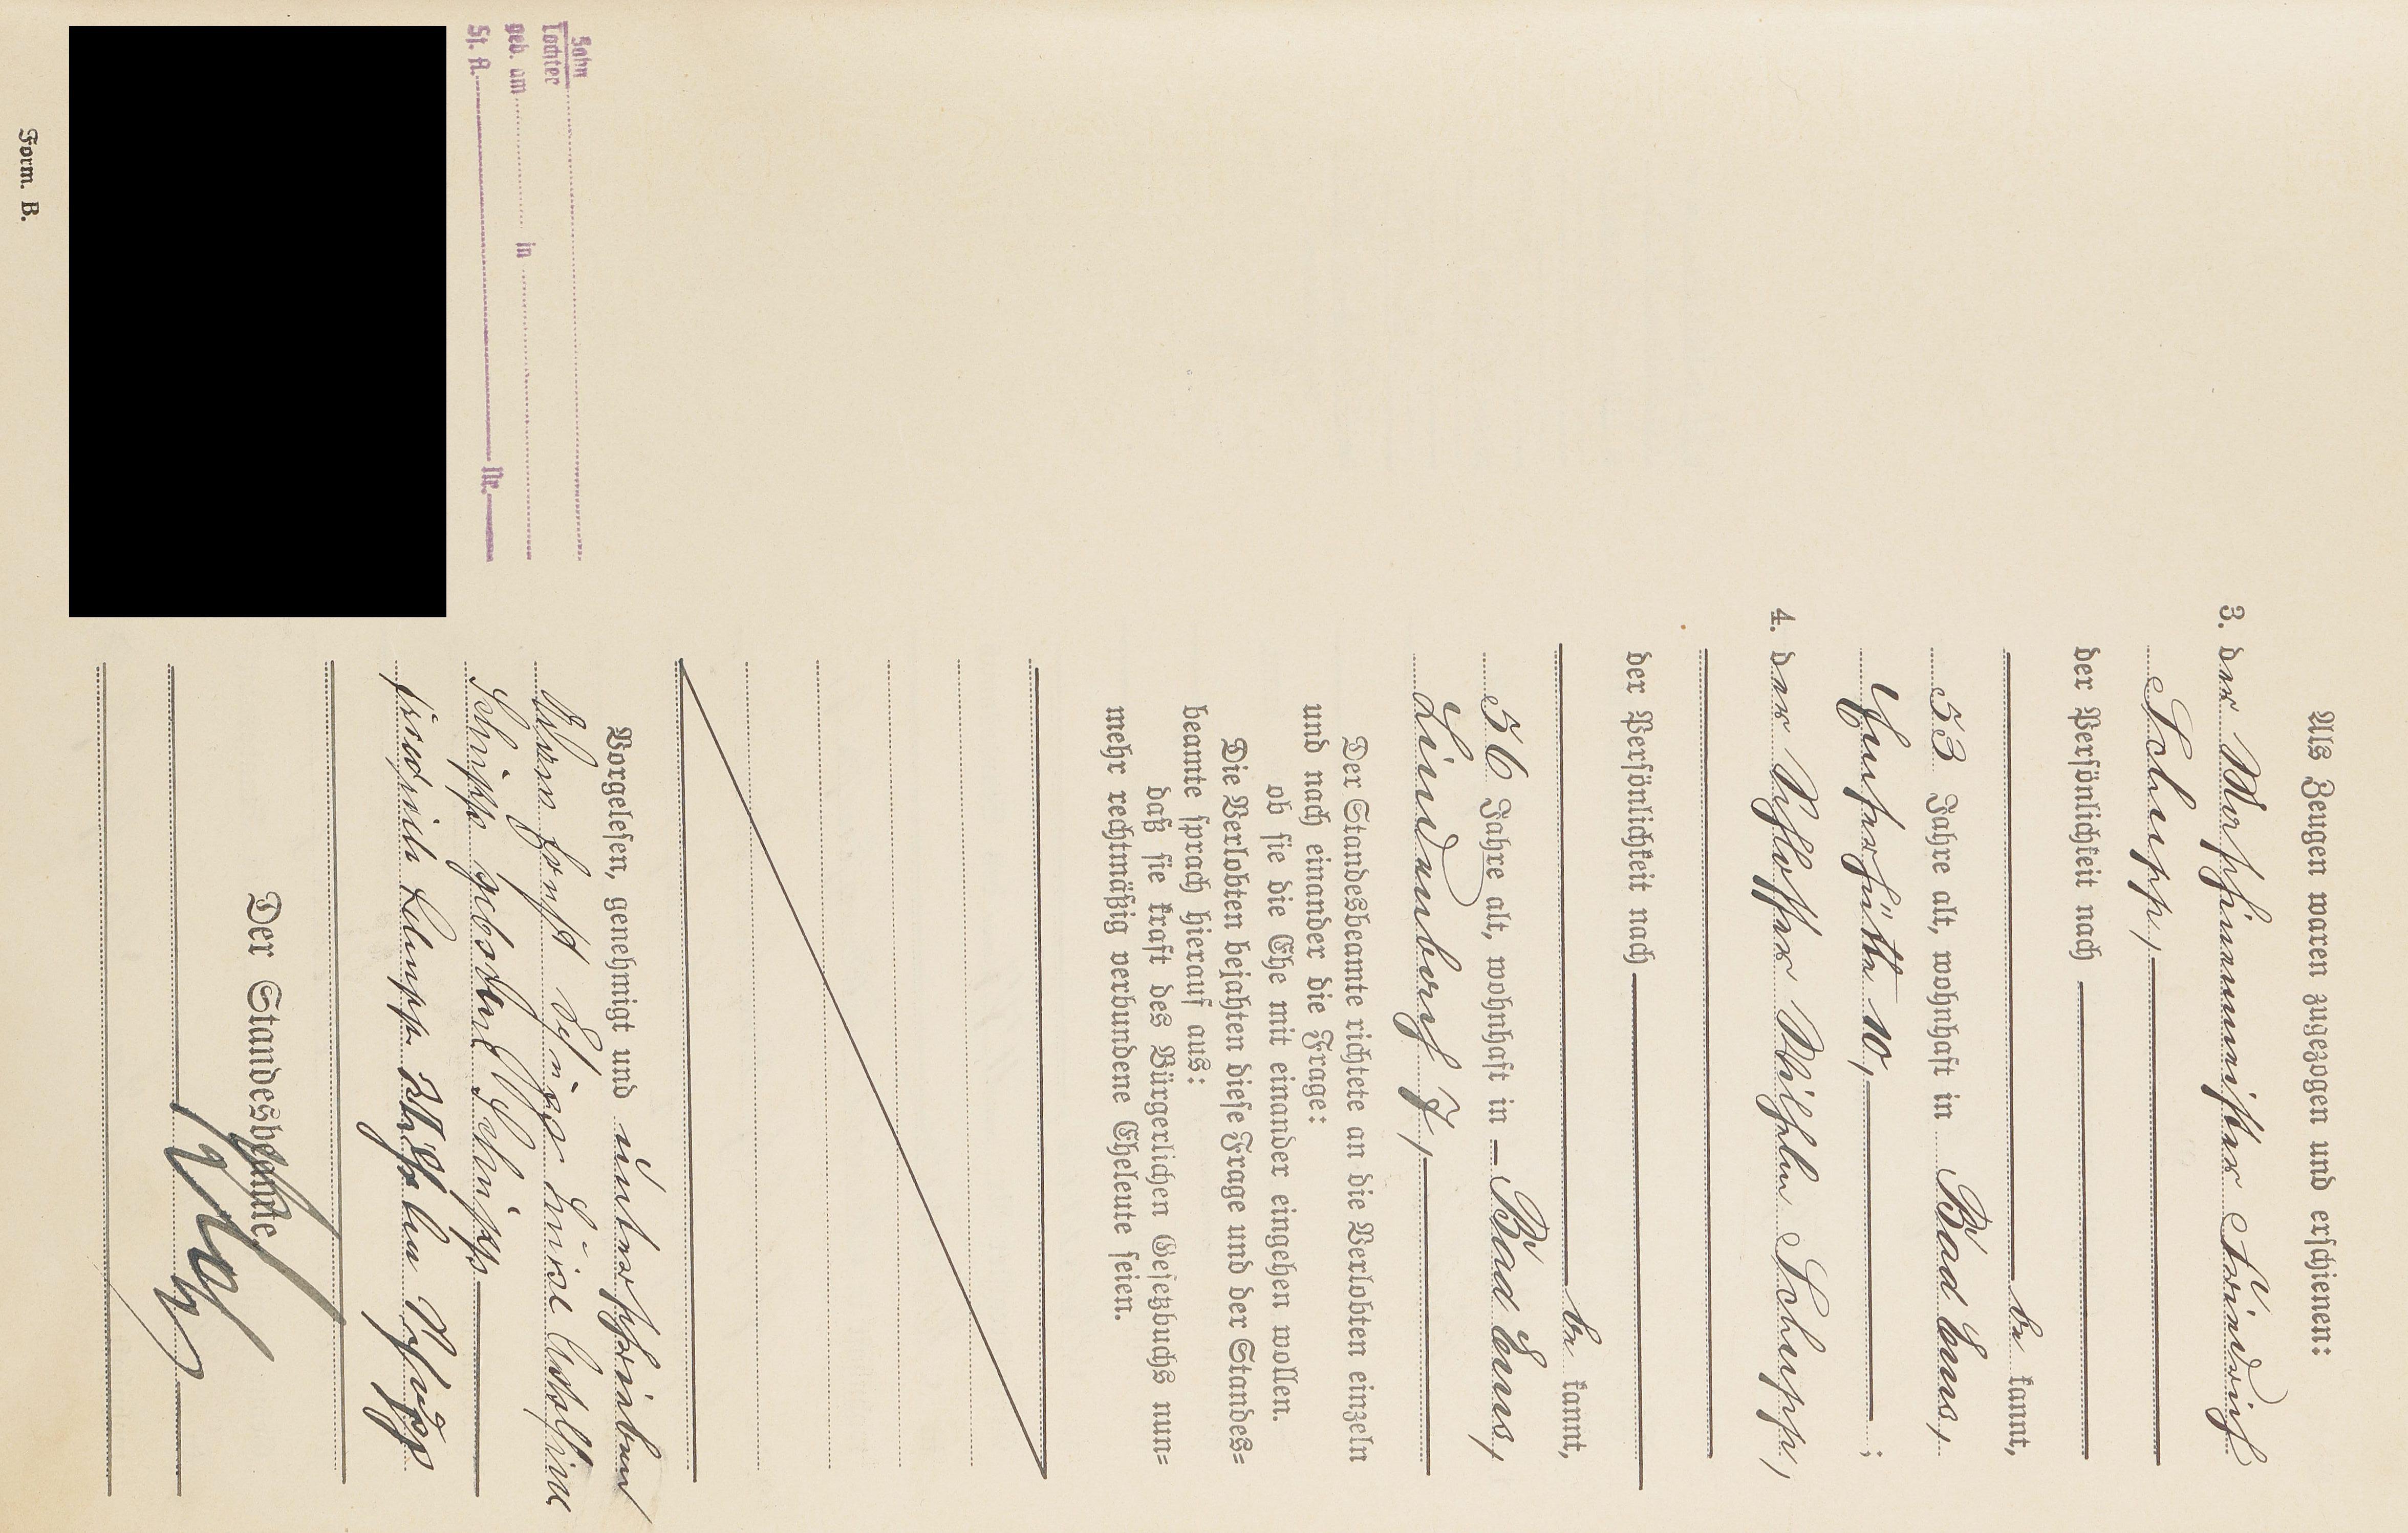 Als Zeugen waren zugezogen und erschienen:
3. der Maschinenmeister Friedrich
Schupp,
der Persönlichkeit nach
be kannt,
53 Jahre alt, wohnhaft in Bad Ems,
10, ;
4. der Schlosser Wilhelm Schupp,
der Persönlichkeit nach
be kannt,
56 Jahre alt, wohnhaft in Bad Ems,
Lindenbach 7,
Der Standesbeamte richtete an die Verlobten einzeln
und nach einander die Frage:
ob sie die Ehe mit einander eingehen wollen.
Die Verlobten bejahten diese Frage und der Standes=
beamte sprach hierauf aus:
daß sie kraft des Bürgerlichen Gesetzbuchs nun=
mehr rechtmäßig verbundene Eheleute seien.
Vorgelesen, genehmigt und unterschrieben
Ernst Luise
geborene
Friedrich Schupp Wilhelm Schupp
Der Standesbeamte.
Sohn
Tochter
geb. am in
St. A. Nr.
Form. B.